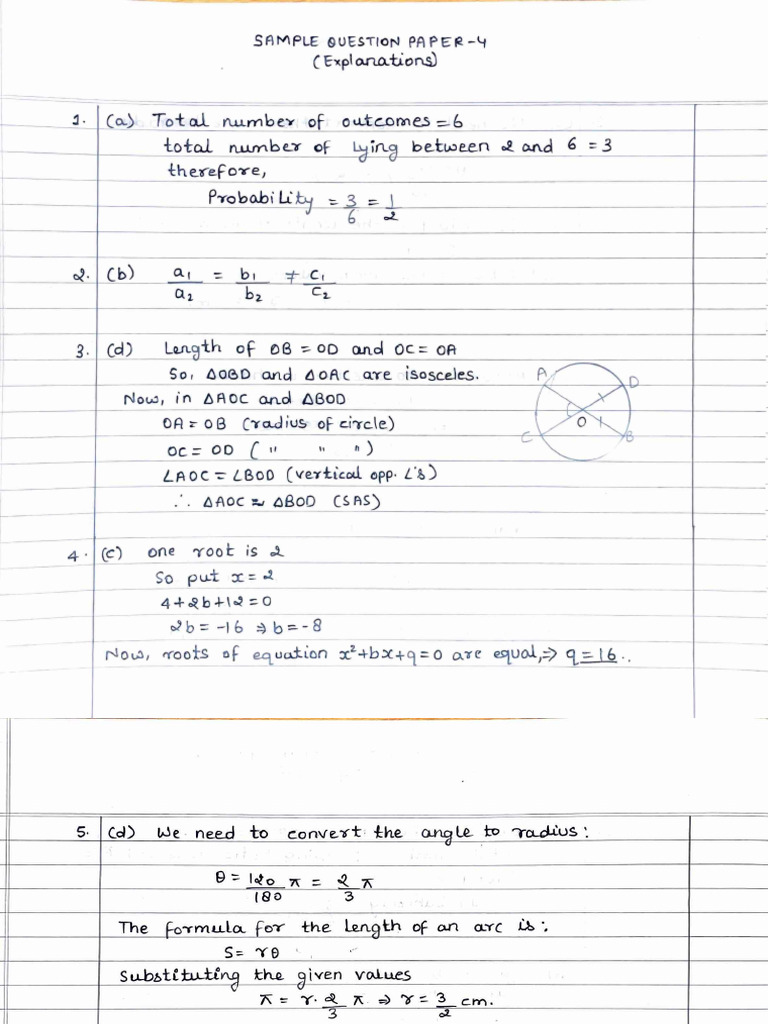 SAMPLE QUESTION PAPER-4
(Explanations)
1. (a) Total number of outcomes = 6
total number of lying between 2 and 6 = 3
therefore,
Probability = 3/6 = 1/2
2. (b) a₁/a₂ = b₁/b₂ ≠ c₁/c₂
3. (d) Length of OB = OD and OC = OA
So, △OBD and △OAC are isosceles.
Now, in △AOC and △BOD
OA = OB (radius of circle)
OC = OD ( " " " )
∠AOC = ∠BOD (vertical opp. ∠'s)
∴ △AOC ≈ △BOD (SAS)
A
D
O
C
B
4. (c) one root is 2
So put x = 2
4+2b+12=0
2b = -16 ⇒ b = -8
Now, roots of equation x²+bx+q=0 are equal, ⇒ q=16.
5. (d) We need to convert the angle to radius:
θ = 120/180 π = 2/3 π
The formula for the length of an arc is:
S= rθ
Substituting the given values
π = r. 2/3 π ⇒ r = 3/2 cm.